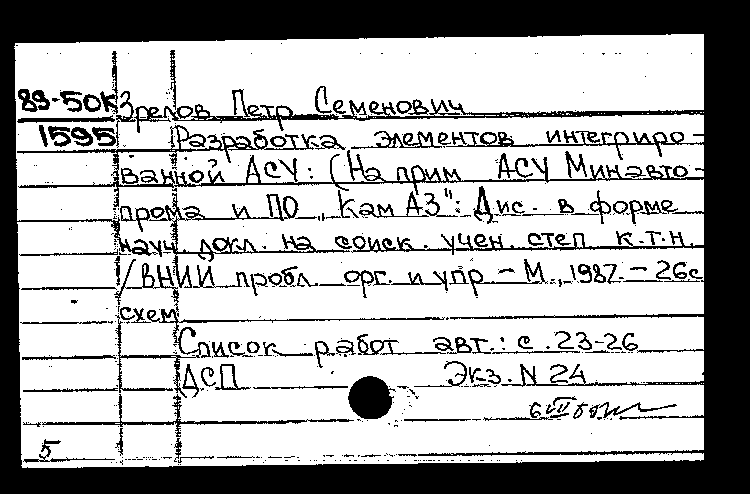 89-50К Зрелов Петр Семенович
1595 Разработка элементов интегриро-
ванной АСУ: (На прим АСУ Минавто-
прома и ПО „КамАЗ": Дис. в форме
науч. докл. на соиск. учен. степ к.т.н.
/ВНИИ пробл. орг. и упр – М., 1987. – 26с
схем
Список работ авт.: с. 23-26
ДСП Экз. N 24
5